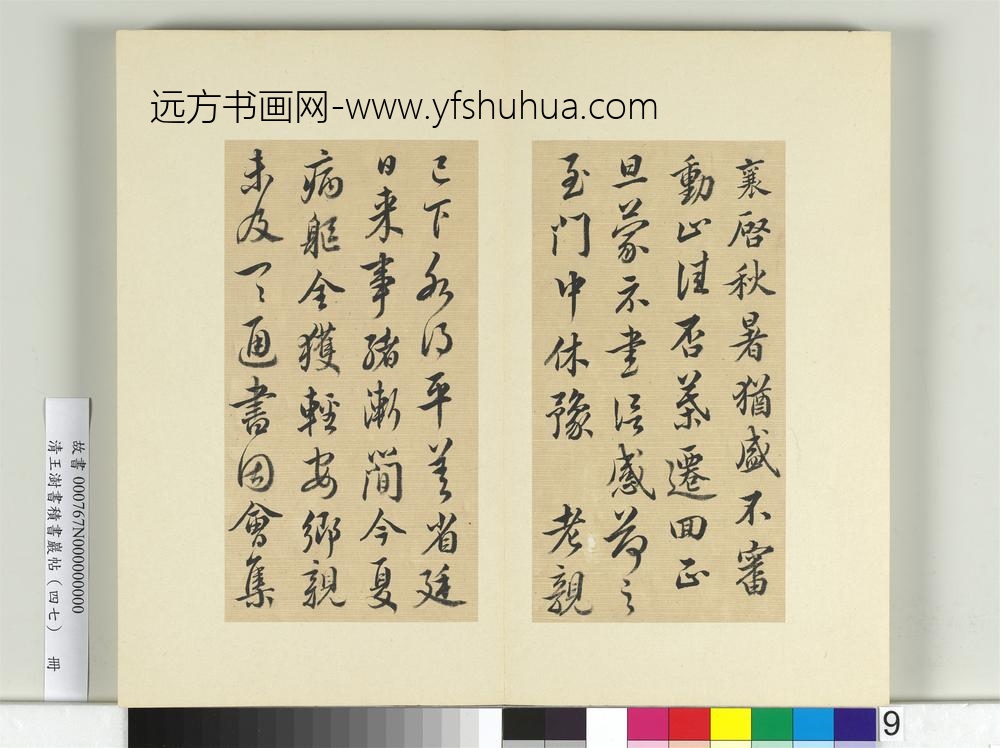 远方书画网-www.yfshuhua.com
襄啓秋暑猶盛不審
動止佳否葉遷回正
旦蒙示書信感荷之
至門中休豫 老親
已下各得平善省廷
日來事緒漸簡今夏
病軀全獲輕安鄉親
未及一一通書因會集
故書 000767N000000000
清王澍書積書巖帖(四七) 冊
9